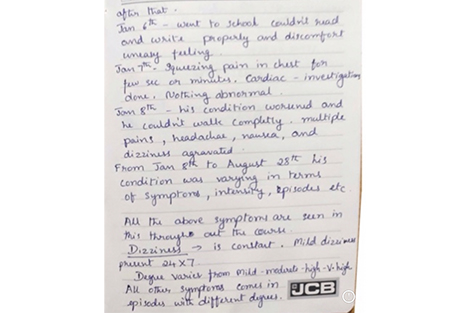 after that.
Jan 6th - went to school couldn't read
and write properly and discomfort
uneasy feeling.
Jan 7th - Squeezing pain in chest for
few sec or minutes. Cardiac - investigation
done. Nothing abnormal.
Jan 8th - his condition worsened and
he couldn't walk completly. multiple
pains, headache, nausea, and
dizziness agravated.
From Jan 8th to August 28th his
condition was varying in terms
of symptoms, intensity, episodes etc
All the above symptoms are seen in
this throught out the course.
Dizziness → is constant. Mild dizziness
present 24X7.
Degree varies from Mild - moderate - high - V. high
All other symptoms comes in
episodes with different degrees.
JCB